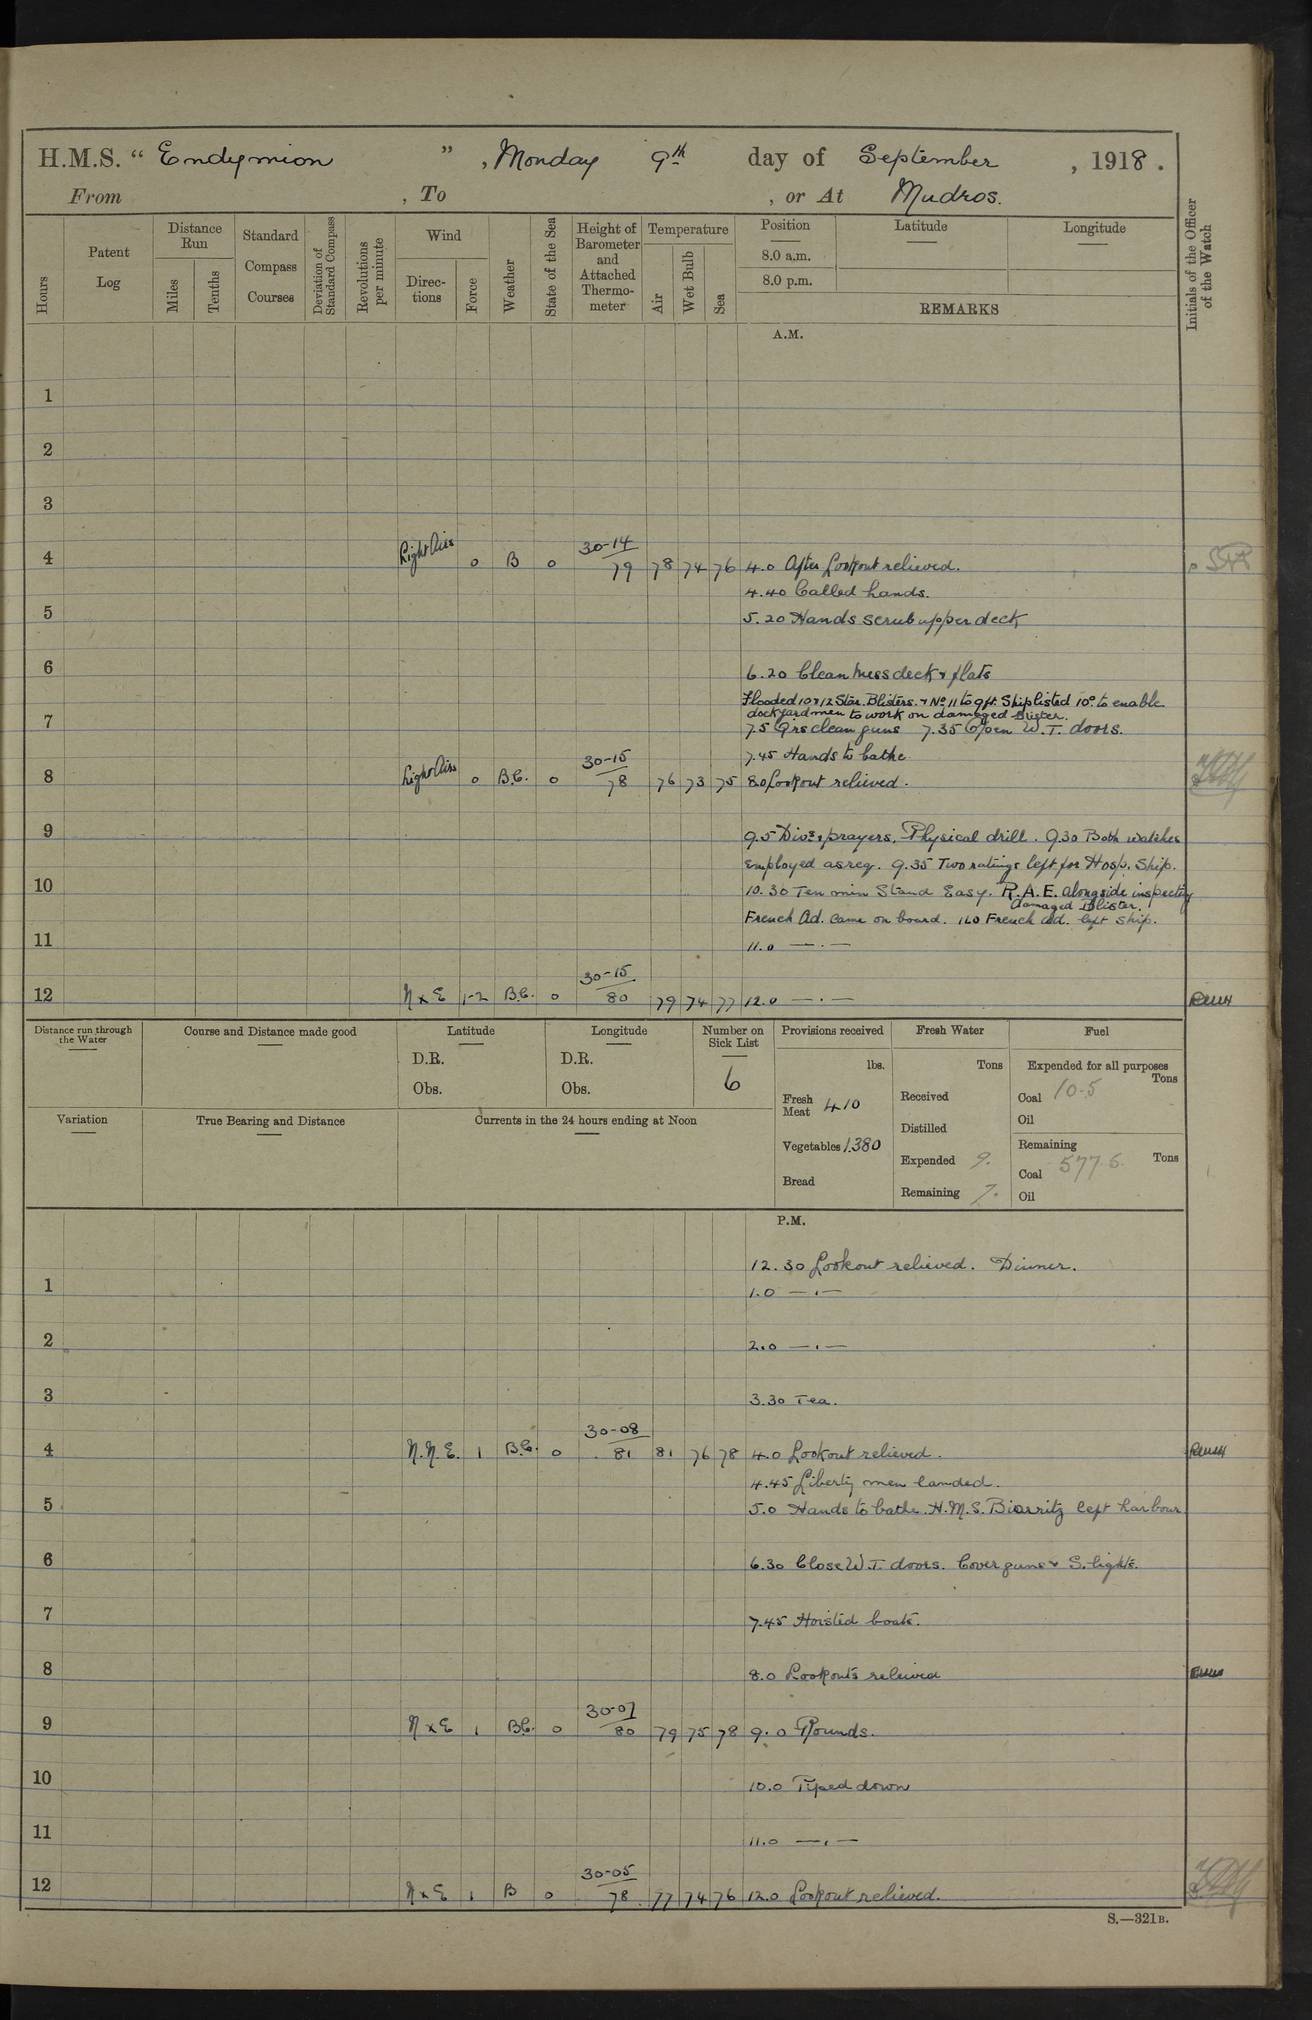 H.M.S. “ Endymion ” , Monday 9th day of September , 1918 .
From , To , or At Mudros.
Hours
Patent Log
Distance Run
Miles
Tenths
Standard Compass Courses
Deviation of Standard Compass
Revolutions per minute
Wind
Direc-tions
Force
Weather
State of the Sea
Height of Barometer and Attached Thermo-meter
Temperature
Air
Wet Bulb
Sea
Position
8.0 a.m.
8.0 p.m.
Latitude
Longitude
REMARKS
Initials of the Officer of the Watch
A.M.
1
2
3
4 Light Airs 0 B 0 30-14 79 78 74 76 4.0 After Lookout relieved.
4.40 Called hands.
5 5.20 Hands scrub upper deck
6 6.20 Clean Mess deck & flats
Flooded 10 & 12 Star. Blisters. & No 11 to 9 ft. Ship listed 10° to enable
dockyard men to work on damaged Blister.
7 7.5 Qrs clean guns 7.35 Open W.T. doors.
7.45 Hands to bathe
8 Light Airs 0 B.C. 0 30-15 78 76 73 75 8.0 Lookout relieved.
9 9.5 Divs & prayers. Physical drill. 9.30 Both watches
employed as req. 9.35 Two ratings left for Hosp. Ship.
10 10.30 Ten min Stand Easy. R.A.E. alongside inspecting
damaged Blister.
French Ad. came on board. French ad. left ship.
11 11.0 — . —
12 N x E 1-2 B.C. 0 30-15 80 79 74 77 12.0 — . —
Distance run through the Water
Course and Distance made good
Latitude
D.R.
Obs.
Longitude
D.R.
Obs.
Number on Sick List
6
Provisions received
lbs.
Fresh Meat 410
Vegetables 1380
Bread
Fresh Water
Tons
Received
Distilled
Expended 9.
Remaining 7.
Fuel
Expended for all purposes
Tons
Coal 10.5
Oil
Remaining
Tons
Coal 577.5
Oil
Variation
True Bearing and Distance
Currents in the 24 hours ending at Noon
P.M.
12.30 Lookout relieved. Dinner.
1 1.0 — . —
2 2.0 — . —
3 3.30 Tea.
4 N.N.E. 1 B.C. 0 30-08 81 81 76 78 4.0 Lookout relieved.
4.45 Liberty men landed.
5 5.0 Hands to bathe. H.M.S. Biarritz left harbour
6 6.30 Close W.T. doors. Cover guns & S. lights.
7 7.45 Hoisted boats.
8 8.0 Lookouts relieved
9 N x E 1 B.C. 0 30-07 80 79 75 78 9.0 Rounds.
10 10.0 Piped down
11 11.0 — . —
12 N x E 1 B 0 30-05 78 77 74 76 12.0 Lookout relieved.
S.—321B.